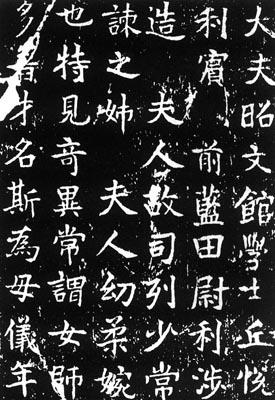 大夫昭文館學士丘悅
利賓 前藍田尉利涉
造 夫人故司列少常
諫之姊 夫人幼柔婉
也特見奇異常謂女師
多才名斯為母儀年